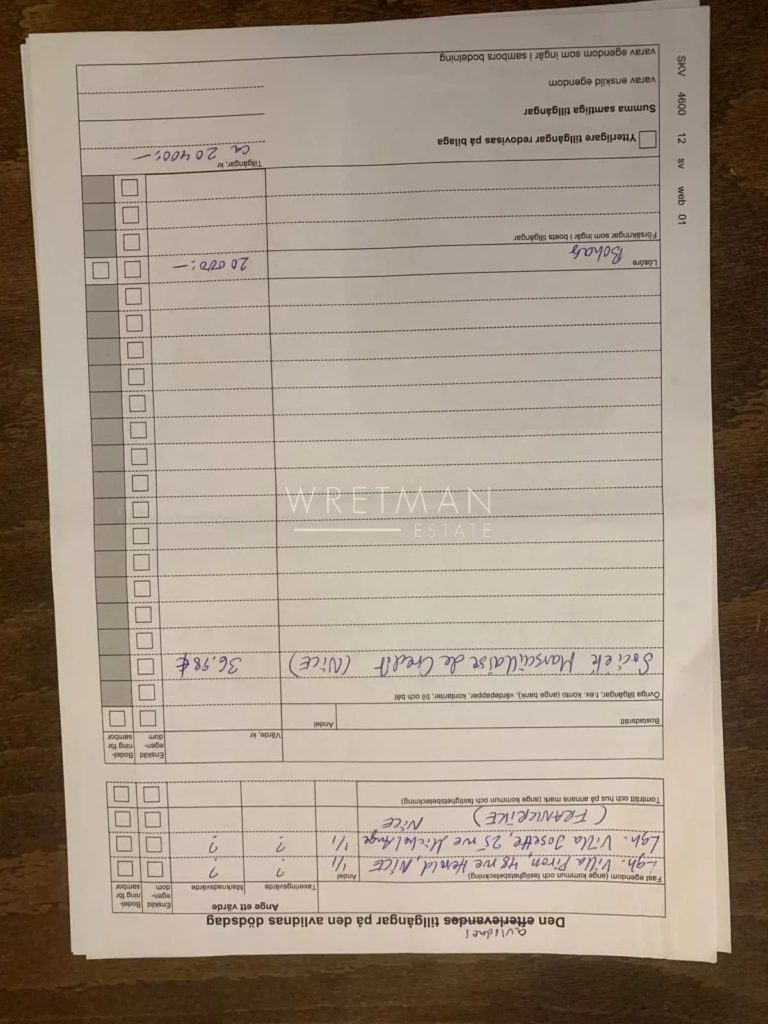 avlidnes
Den efterlevandes tillgångar på den avlidnas dödsdag
Ange ett värde
Fast egendom (ange kommun och fastighetsbeteckning)
Andel
Taxeringsvärde
Marknadsvärde
Enskild egen- dom
Bodel- ning för sambor
Lgh. Villa Piron, 48 rue Herold, NICE 1/1 ? ?
Lgh. Villa Josette, 25 rue Michel Ange 1/1 ? ?
(FRANKRIKE) NICE
Tomträtt och hus på annans mark (ange kommun och fastighetsbeteckning)
Värde, kr
Enskild egen- dom
Bodel- ning för sambor
Bostadsrätt
Andel
Övriga tillgångar, t.ex. konto (ange bank), värdepapper, kontanter, bil och båt
Société Marseillaise de Credit (NICE) 36.98 €
Lösöre
Bohag 20 000:-
Försäkringar som ingår i boets tillgångar
Ytterligare tillgångar redovisas på bilaga
Tillgångar, kr
ca 20 400:-
Summa samtliga tillgångar
varav enskild egendom
varav egendom som ingår i sambors bodelning
SKV 4600 12 sv web 01
WRETMAN
ESTATE